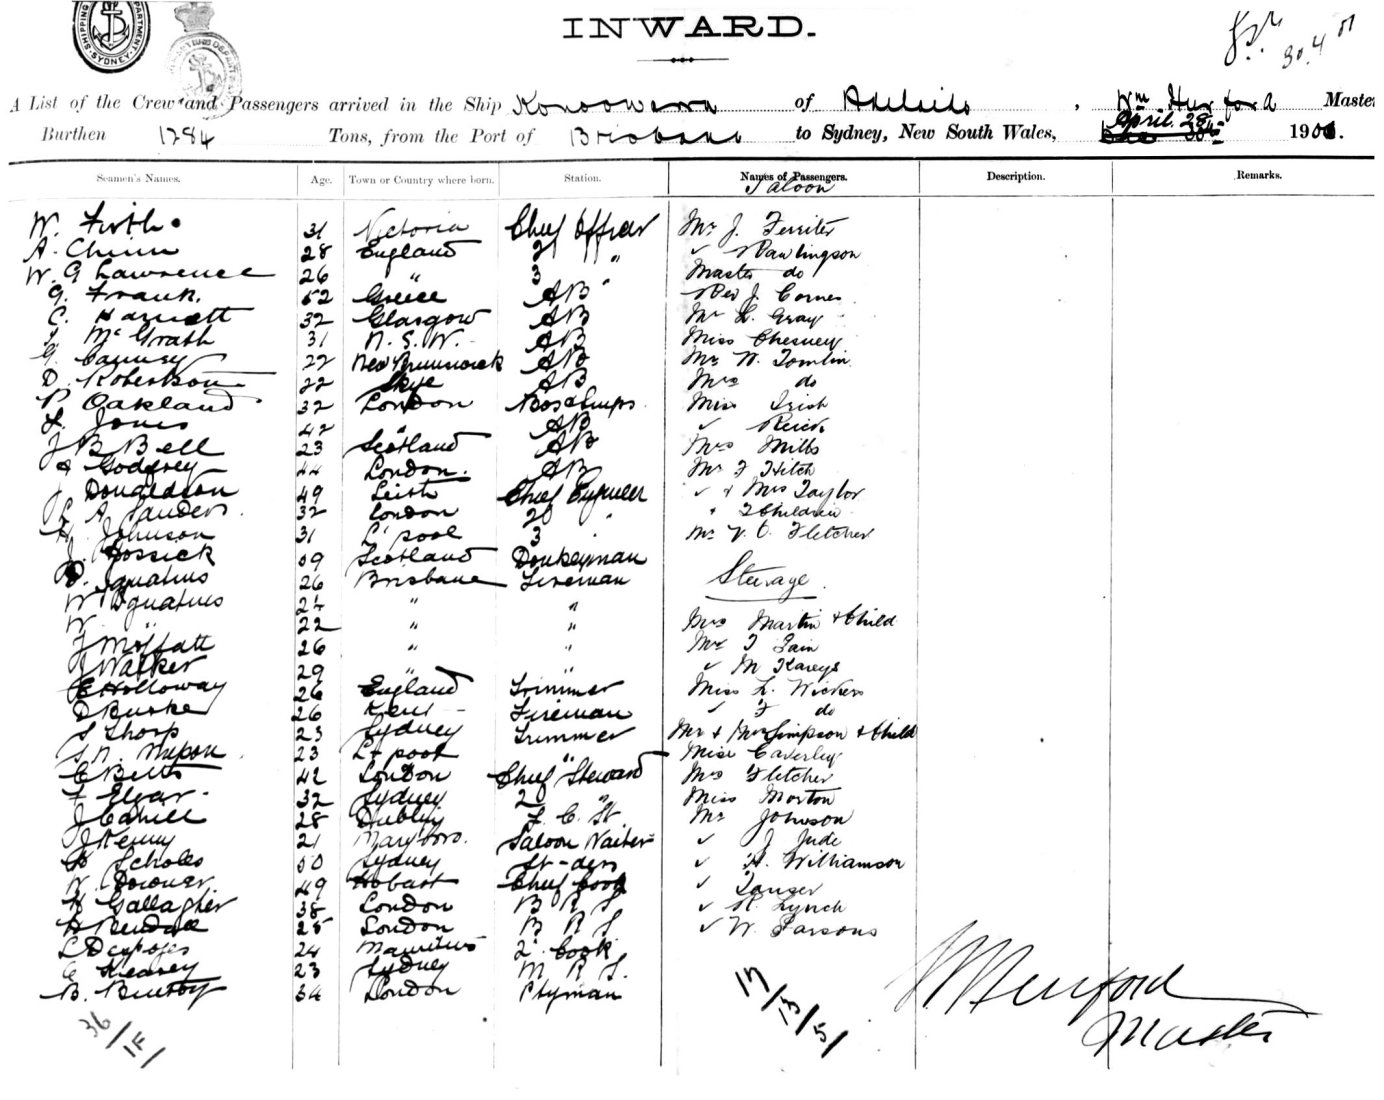 SHIPPING DEPARTMENT SYDNEY
INWARD.
30.4.01
A List of the Crew and Passengers arrived in the Ship Konoowarra of Adelaide, Wm Hurford Master
Burthen 1284 Tons, from the Port of Brisbane to Sydney, New South Wales, April 28th 1901.
Seamen's Names. Age. Town or Country where born. Station. Names of Passengers. Description. Remarks.
Saloon
W. Firth 31 Victoria Chief Officer Mr J. Ferriter
A. Chinn 28 England 2 " ✓ Rawlingson
W. G Lawrence 26 " 3 " Master do
G. Frank. 52 Greece AB Rev J. Cornes
C. Harnett 32 Glasgow AB Mr L. Gray
McGrath 31 N. S. W. AB Miss Chesney
G. 22 New Brunswick AB Mr W. Tomlin
D. Robertson 22 Skye AB Mrs do
P Oakland 32 London Miss Irish
L. Jones 42 " AB ✓
J B Bell 23 Scotland AB Mrs Mills
Godfrey 44 London. AB Mr F Hitch
J Donaldson 49 Leith Chief Engineer ✓ + Mrs Taylor
A. Sanders 32 London 2d " " 2 Children
H. Johnson 31 L'pool 3 " Mr V. C. Fletcher
J. Gossick 59 Scotland Donkeyman
D. Ignatius 26 Brisbane Fireman Steerage.
W Ignatius 24 " "
W. " 22 " " Mrs Martin + Child
J Moffatt 26 " " Mr T Fain
J Walker 29 " " ✓ M Kareys
E Holloway 26 England Trimmer Miss L. Wickers
D Burke 26 Kent Fireman ✓ F do
S Thorp 23 Sydney Trimmer Mr + Mrs Simpson + Child
23 L'pool " Miss Caverley
C Betts 42 London Chief Steward Mrs Fletcher
F Elgar 32 Sydney 2 " Miss Morton
J Cahill 28 Dublin F. C. St Mr Johnson
J Kenny 21 Maryboro. Saloon Waiter ✓ J Jude
H Scholes 50 Sydney St-dess ✓ H. Williamson
W. Downer 49 Hobart Chief Cook ✓
H Gallagher 38 London B R S ✓ R. Lynch
H Rendall 25 London B R S ✓ W. Parsons
24 Mauritius 2 Cook
C Kearey 23 Sydney M R S.
B. 34 London P tyman
36/1F/
17/13/5/
W Hurford
Master